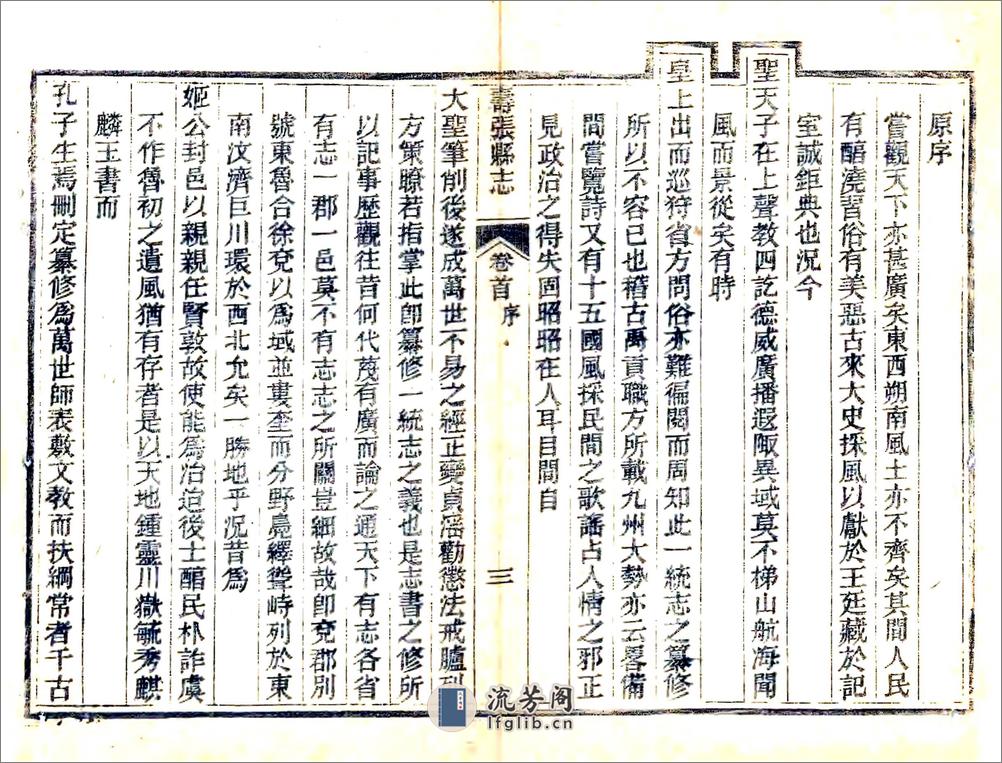 原序
嘗觀天下亦甚廣矣東西朔南風土亦不齊矣其間人民
有醇澆習俗有美惡古來大史採風以獻於王廷藏於記
室誠鉅典也況今
聖天子在上聲教四訖德威廣播遐陬異域莫不梯山航海聞
風而景從矣有時
皇上出而巡狩省方問俗亦難徧閱而周知此一統志之纂修
所以不容已也稽古禹貢職方所載九州大勢亦云畧備
間嘗覽詩又有十五國風採民間之歌謠占人情之邪正
見政治之得失固昭昭在人耳目間自
壽張縣志
卷首
序
三
大聖筆削後遂成萬世不易之經正變貞淫勸懲法戒臚列
方策瞭若指掌此卽纂修一統志之義也是志書之修所
以記事歷觀往昔何代蔑有廣而論之通天下有志各省
有志一郡一邑莫不有志志之所關豈細故哉卽兗郡別
號東魯合徐兗以爲域並婁奎而分野鳧繹聳峙列於東
南汶濟巨川環於西北允矣一勝地乎況昔爲
姬公封邑以親親任賢敦故使能爲治迨後士醇民朴詐虞
不作魯初之遺風猶有存者是以天地鍾靈川嶽毓秀麒
麟玉書而
孔子生焉刪定纂修爲萬世師表敷文教而扶綱常者千古
流芳阁
lfglib.cn